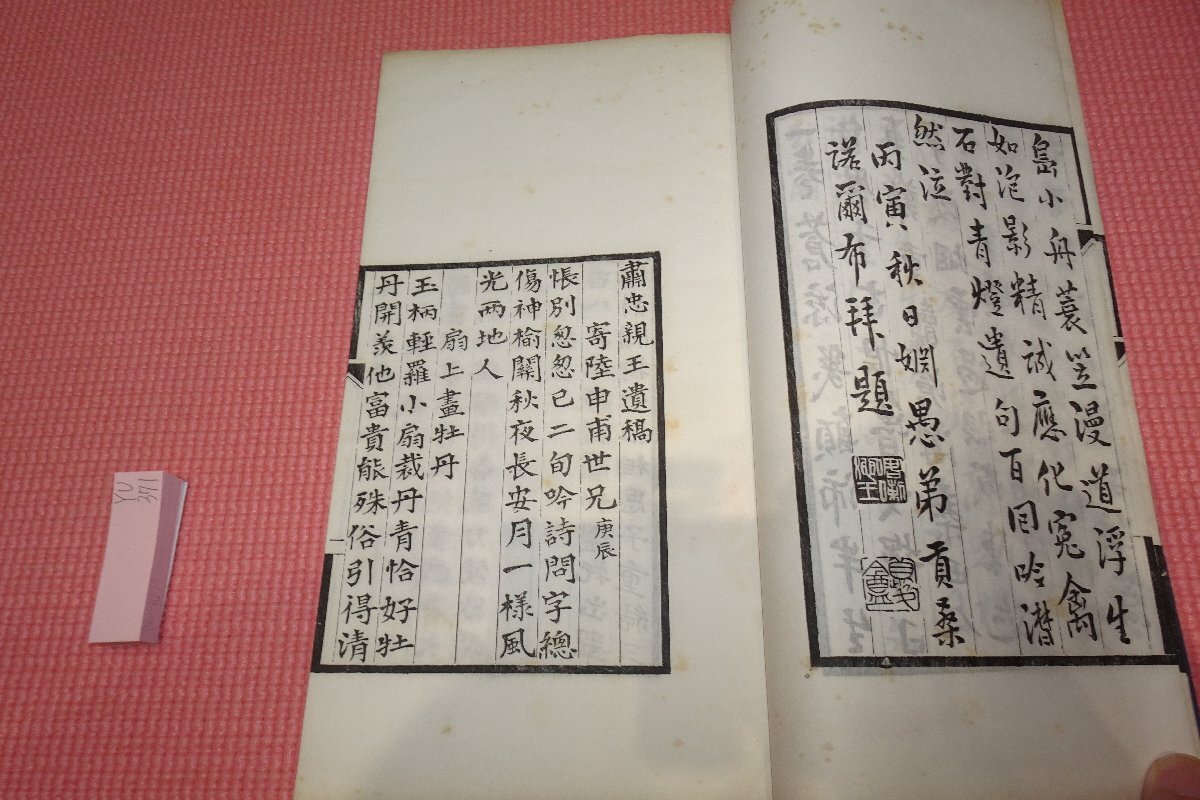 島小舟蓑笠漫道浮生
如泡影精誠應化冤禽
石對青燈遺句百回吟潸
然泣
丙寅秋日姻愚弟貢桑
諾爾布拜題
肅忠親王遺稿
寄陸申甫世兄庚辰
悵別怱怱已二旬吟詩問字總
傷神榆關秋夜長安月一樣風
光兩地人
扇上畫牡丹
玉柄輕羅小扇裁丹青恰好牡
丹開羨他富貴能殊俗引得清
YU